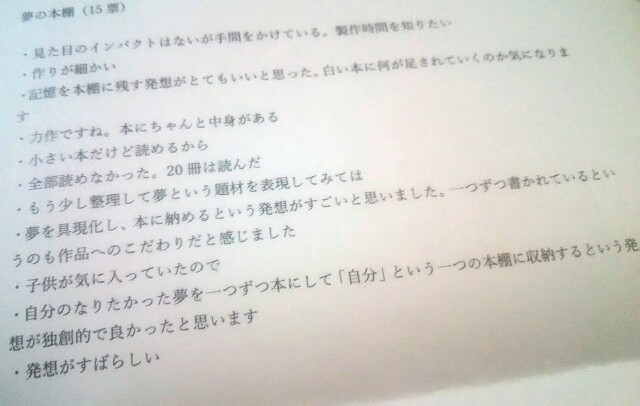 夢の本棚（15票）
・見た目のインパクトはないが手間をかけている。製作時間を知りたい
・作りが細かい
・記憶を本棚に残す発想がとてもいいと思った。白い本に何が足されていくのか気になりま
す
・力作ですね。本にちゃんと中身がある
・小さい本だけど読めるから
・全部読めなかった。20冊は読んだ
・もう少し整理して夢という題材を表現してみては
・夢を具現化し、本に納めるという発想がすごいと思いました。一つずつ書かれているとい
うのも作品へのこだわりだと感じました
・子供が気に入っていたので
・自分のなりたかった夢を一つずつ本にして「自分」という一つの本棚に収納するという発
想が独創的で良かったと思います
・発想がすばらしい